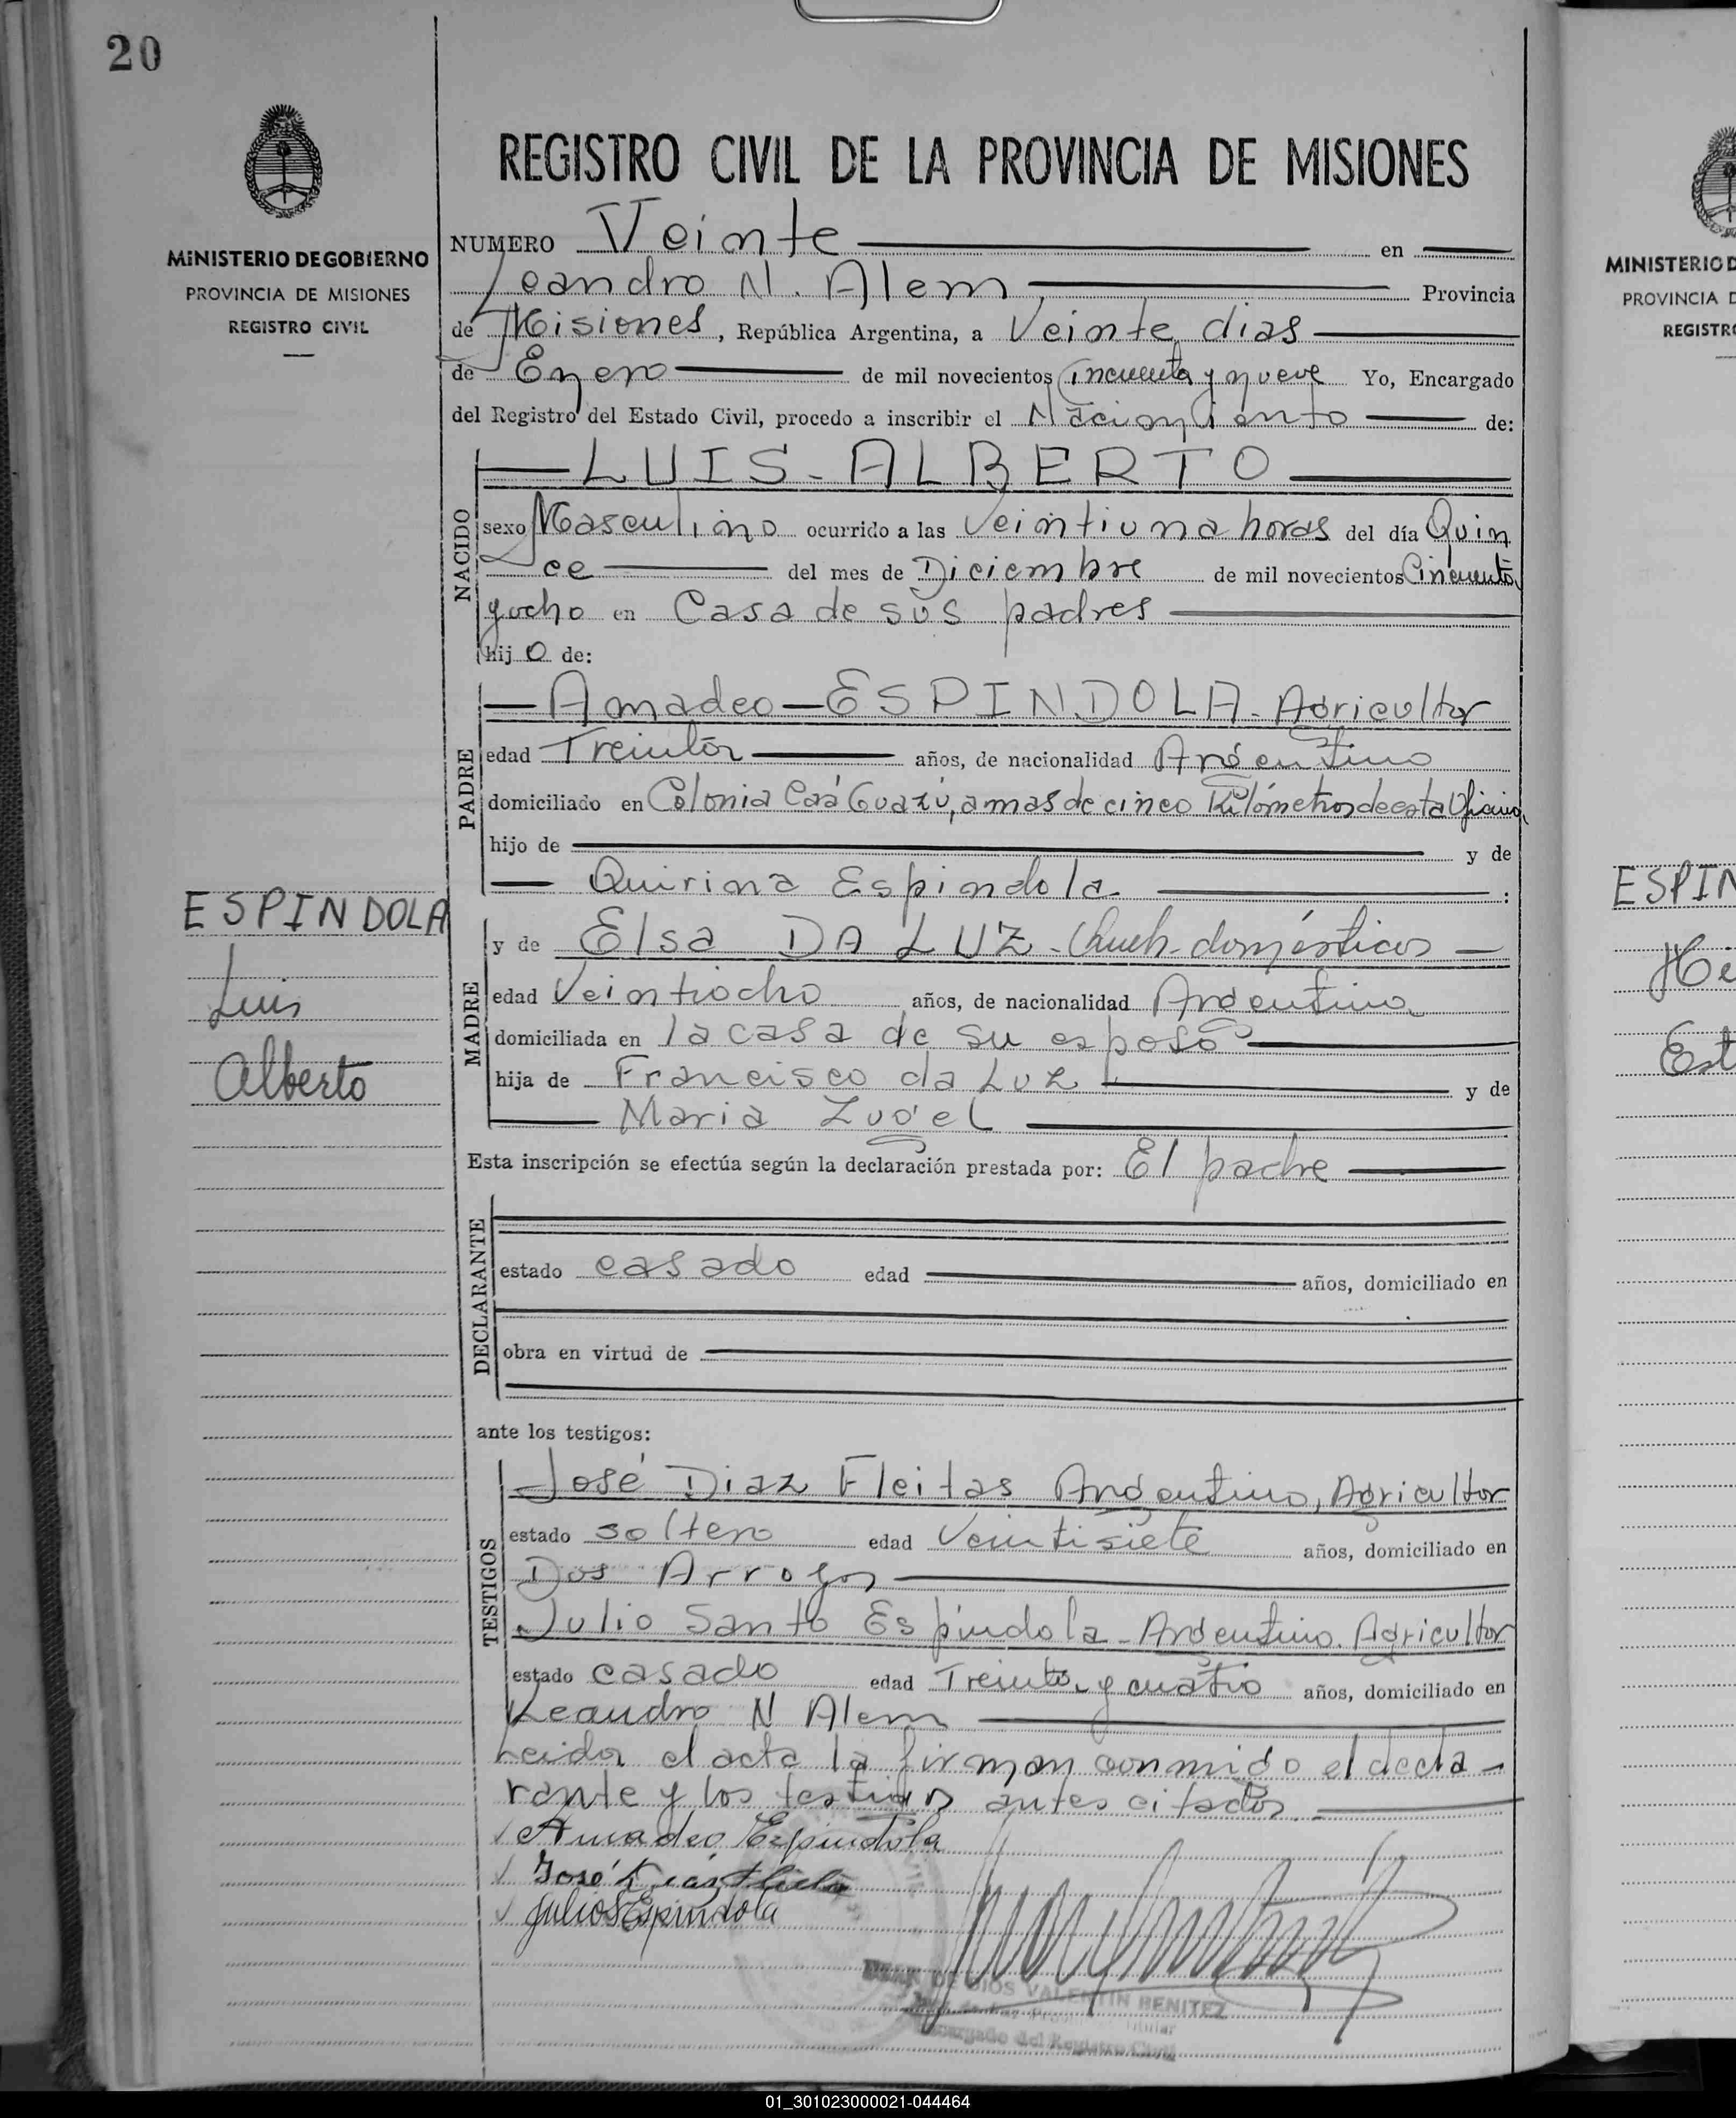 20
MINISTERIO DE GOBIERNO
PROVINCIA DE MISIONES
REGISTRO CIVIL
REGISTRO CIVIL DE LA PROVINCIA DE MISIONES
NUMERO Veinte en
Leandro N. Alem Provincia
de Misiones, República Argentina, a Veinte dias
de Enero de mil novecientos Cincuenta y nueve Yo, Encargado
del Registro del Estado Civil, procedo a inscribir el Nacimiento de:
NACIDO
LUIS - ALBERTO
sexo Masculino ocurrido a las Veintiuna horas del día Quin
ce del mes de Diciembre de mil novecientos Cincuenta
y ocho en Casa de sus padres
hijo de:
PADRE
Amadeo - ESPINDOLA - Agricultor
edad Treinta años, de nacionalidad Argentino
domiciliado en Colonia Caá Guazú, a mas de cinco Kilómetros de esta Oficina
hijo de y de
Quirina Espindola
ESPINDOLA
Luis
Alberto
MADRE
y de Elsa DA LUZ - Queh. domésticos
edad Veintiocho años, de nacionalidad Argentina
domiciliada en la casa de su esposo
hija de Francisco da Luz y de
Maria Zugel
Esta inscripción se efectúa según la declaración prestada por: El padre
DECLARANTE
estado casado edad años, domiciliado en
obra en virtud de
ante los testigos:
TESTIGOS
José Diaz Fleitas Argentino, Agricultor
estado soltero edad Veintisiete años, domiciliado en
Dos Arroyos
Julio Santo Espindola - Argentino. Agricultor
estado casado edad Treinta y cuatro años, domiciliado en
Leandro N Alem
Leida el acta la firman conmigo el decla-
rante y los testigos antes citados.
Amadeo Espindola
José Diaz Fleitas
Julio S Espindola
JUAN DE DIOS VALENTIN BENITEZ
Titular
Encargado del Registro Civil
MINISTERIO D
PROVINCIA D
REGISTR
ESPIN
Est
01_301023000021-044464